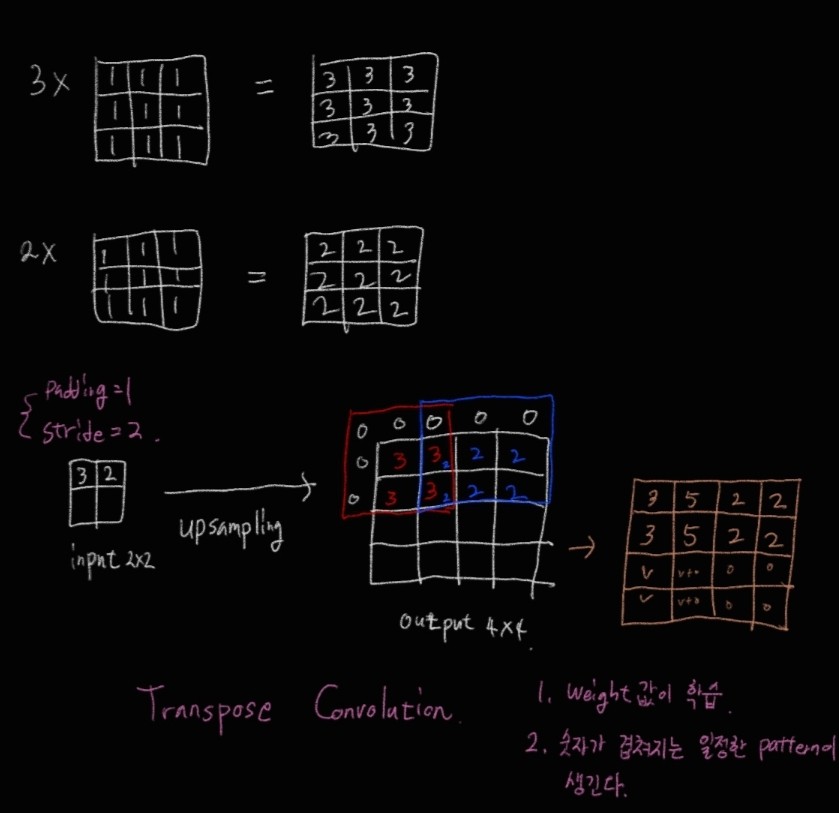 3 x
1 1 1
1 1 1
1 1 1
=
3 3 3
3 3 3
3 3 3
2 x
1 1 1
1 1 1
1 1 1
=
2 2 2
2 2 2
2 2 2
padding = 1
stride = 2 .
3 2
input 2x2
upsampling
0 0 0 0 0
0 3 3 2 2 2
0 3 3 2 2 2
output 4x4.
3 5 2 2
3 5 2 2
v 0 0
v 0 0
Transpose Convolution.
1. Weight 값이 학습.
2. 숫자가 겹쳐지는 일정한 pattern이
생긴다.